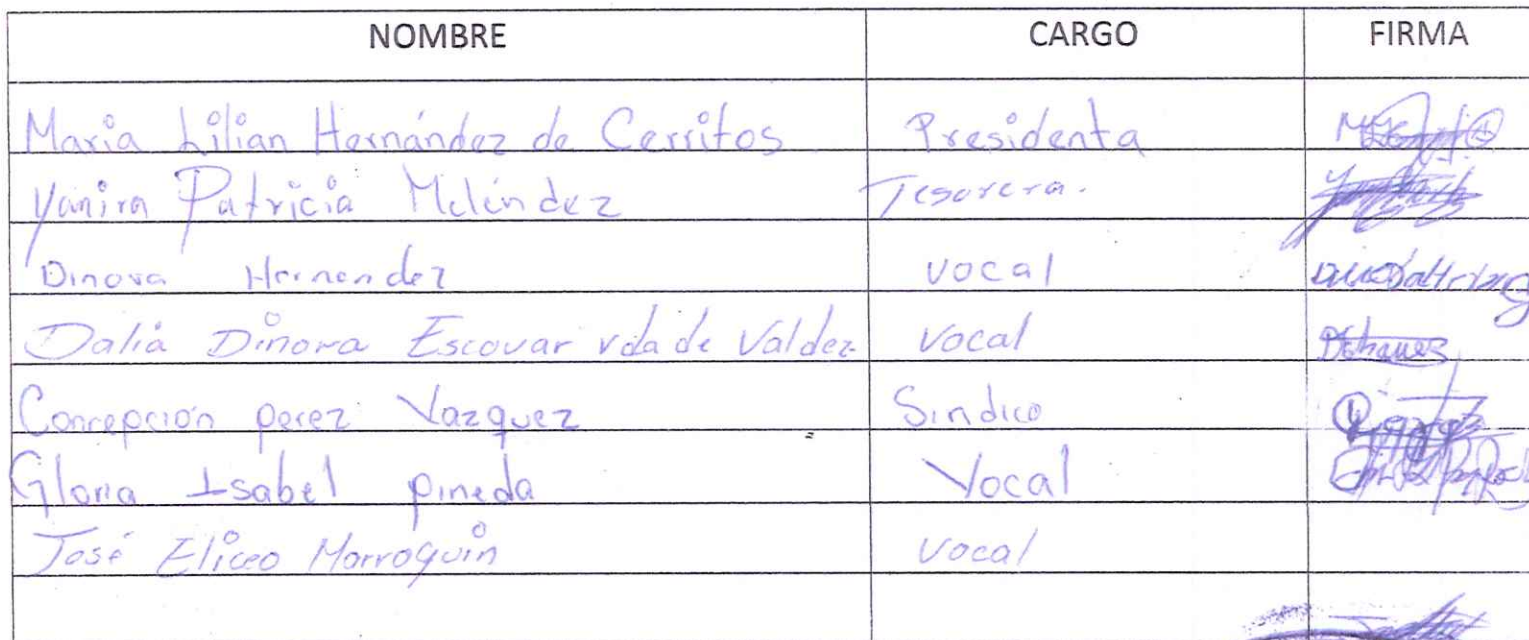 NOMBRE CARGO FIRMA
Maria Lilian Hernández de Cerritos Presidenta
Yanira Patricia Meléndez Tesorera.
Dinora Hernendez vocal
Dalia Dinora Escovar vda de Valdez vocal
Concepción perez Vazquez Sindico
Gloria Isabel pineda Vocal
José Eliceo Marroquin vocal